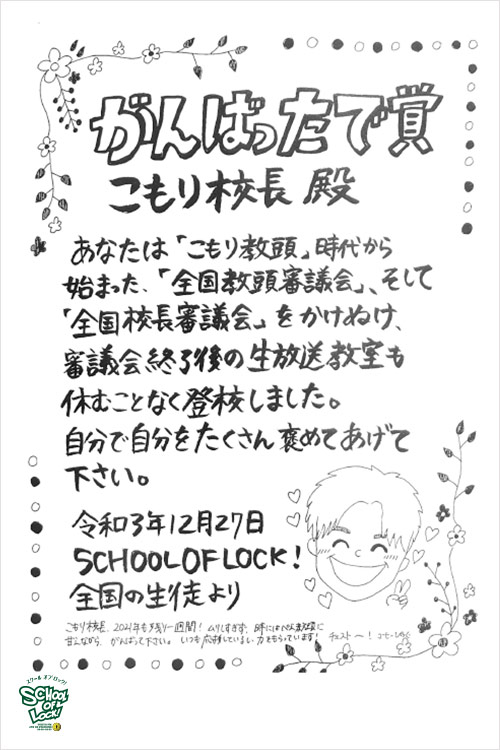 がんばったで賞
こもり校長 殿
あなたは「こもり教頭」時代から
始まった、「全国教頭審議会」、そして
「全国校長審議会」をかけぬけ、
審議会終了後の生放送教室も
休むことなく登校しました。
自分で自分をたくさん褒めてあげて
下さい。
令和3年12月27日
SCHOOL OF LOCK!
全国の生徒より
こもり校長、2021年も残り一週間!ムリしすぎず、時には
甘えながら、がんばって下さい。いつも応援しているし力をもらっています! チェスト〜!
スクール オブ ロック!
SCHOOL
OF
LOCK!